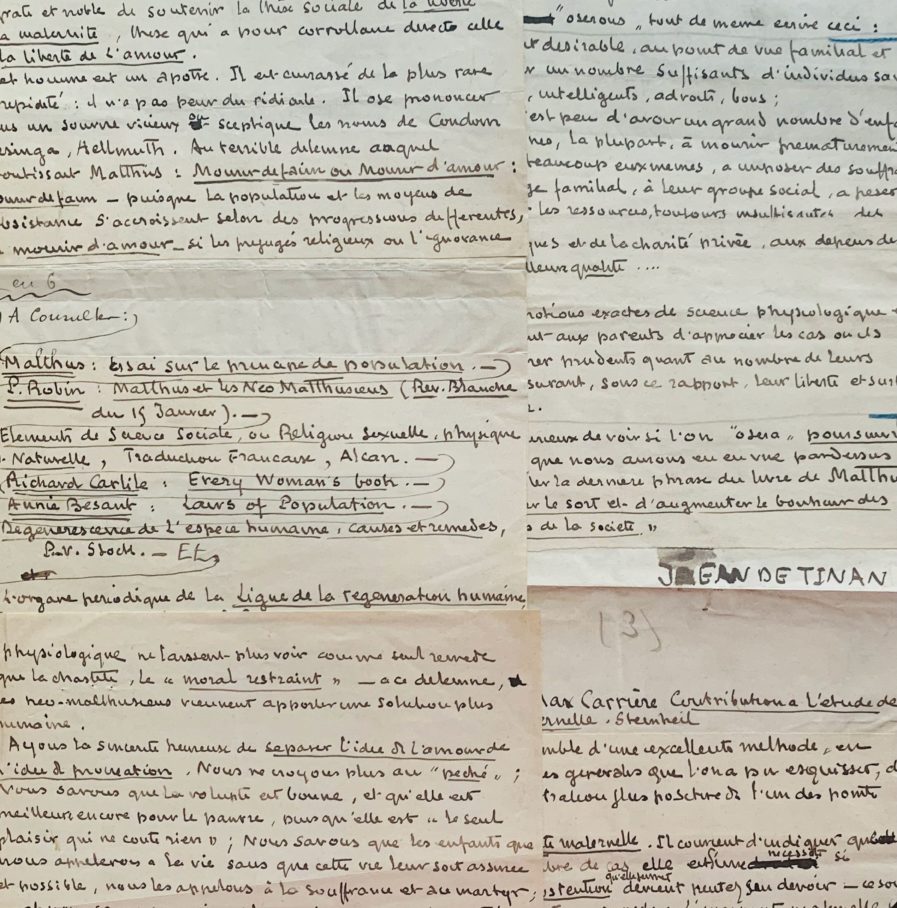 et noble de soutenir la thèse sociale de la liberté
la maternité, thèse qui a pour corrollaire directe celle
la liberté de l'amour.
et homme est un apôtre. Il est cuirassé de la plus rare
: il n'a pas peur du ridicule. Il ose prononcer
un sourire vicieux sceptique les noms de Condom
Hellmuth. Au terrible dilemne auquel
Malthus : Mourir de faim ou Mourir d'amour :
mourir de faim – puisque la population et les moyens de
s'accroissent selon des progressions differentes,
mourir d'amour – si les préjugés religieux ou l'ignorance
en 6
A Consulter :
Malthus : Essai sur le principe de population. —
P. Robin : Malthus et les Neo Malthusiens (Rev. Blanche
du 15 Janvier). —
Elements de Science Sociale, ou Religion sexuelle, physique
Naturelle, Traduction Francaise, Alcan. —
Richard Carlile : Every Woman's book. —
Annie Besant : Laws of Population. —
Degenerescence de l'espece humaine, causes et remedes,
P.-V. Stock. — Et,
L'organe periodique de la Ligue de la regeneration humaine
physiologique ne laissent plus voir comme seul remede
que la chasteté, le « moral restraint » — a ce dilemne,
neo-malthusiens viennent apporter une solution plus
humaine.
Ayons la sincerité heureuse de separer l'idée de l'amour de
l'idée de procreation. Nous ne croyons plus au "peché" ;
Nous savons que la volupté est bonne, et qu'elle est
meilleure encore pour le pauvre, puisqu'elle est « le seul
plaisir qui ne coute rien » ; Nous savons que les enfants que
nous appelerons a la vie sans que cette vie leur soit assurée
et possible, nous les appelons à la souffrance et au martyr ;
"oserons" tout de meme ecrire ceci :
desirable, au point de vue familial et
un nombre suffisants d'individus
, intelligents, adroits, bons ;
est peu d'avoir un grand nombre d'enf
, la plupart, à mourir prematuremen
beaucoup eux memes, a imposer des souffra
familial, à leur groupe social, a peser
les ressources, toujours insuffisantes des
ques et de la charité privée, aux depens de
leur qualité ....
notions exactes de science physiologique
aux parents d'apprecier les cas ou ils
prudents quant au nombre de leurs
surant, sous ce rapport, leur liberté et
curieux de voir si l'on "osera" poursuivre
que nous avons eu en vue pardessus
la derniere phrase du livre de Malthu
le sort et d'augmenter le bonheur des
de la societé. "
JEAN DE TINAN
(3)
Max Carrière Contribution a l'étude de
. Steinheil
d'une excellente methode, en
generales que l'on a pu esquisser, d
plus positive de l'un des points
maternelle. Il convient d'indiquer
de cas elle est une si
devient peut etre un devoir – ce